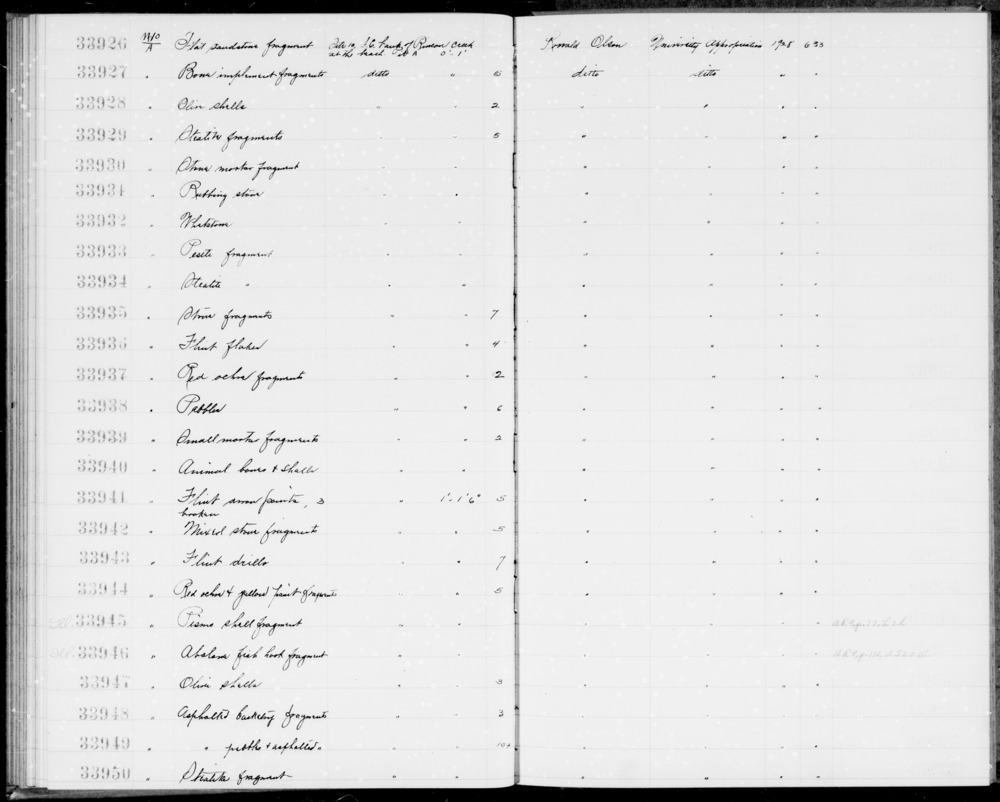 33926 N10/A Flat sandstone fragment Site 10, S.E. bank of Rincon Creek at the beach Pit A 0'-1' Ronald Olson University Appropriation 1928 633
33927 " Bone implement fragments ditto " 15 ditto ditto " "
33928 " Oliv shells " " 2 " " " "
33929 " Steatite fragments " " 5 " " " "
33930 " Stone mortar fragment " " " " " "
33931 " Rubbing stone " " " " " "
33932 " Whetstone " " " " " "
33933 " Pestle fragment " " " " " "
33934 " Steatite " " " " " " "
33935 " Stone fragments " " 7 " " " "
33936 " Flint flakes " " 4 " " " "
33937 " Red ochre fragments " " 2 " " " "
33938 " Pebbles " " 6 " " " "
33939 " Small mortar fragments " " 2 " " " "
33940 " Animal bones & shells " " " " " "
33941 " Flint arrow points, 3 broken " 1'-1'6" 5 " " " "
33942 " Mixed stone fragments " " 5 " " " "
33943 " Flint drills " " 7 " " " "
33944 " Red ochre & yellow paint fragments " " 5 " " " "
33945 " Pismo shell fragment " " " " " "
33946 " Abalone fish hook fragment " " " " " "
33947 " Olive shells " " 3 " " " "
33948 " Asphalted basketry fragments " " 3 " " " "
33949 " " pebbles & asphalted " " " 10+ " " " "
33950 " Steatite fragment " " " " " "